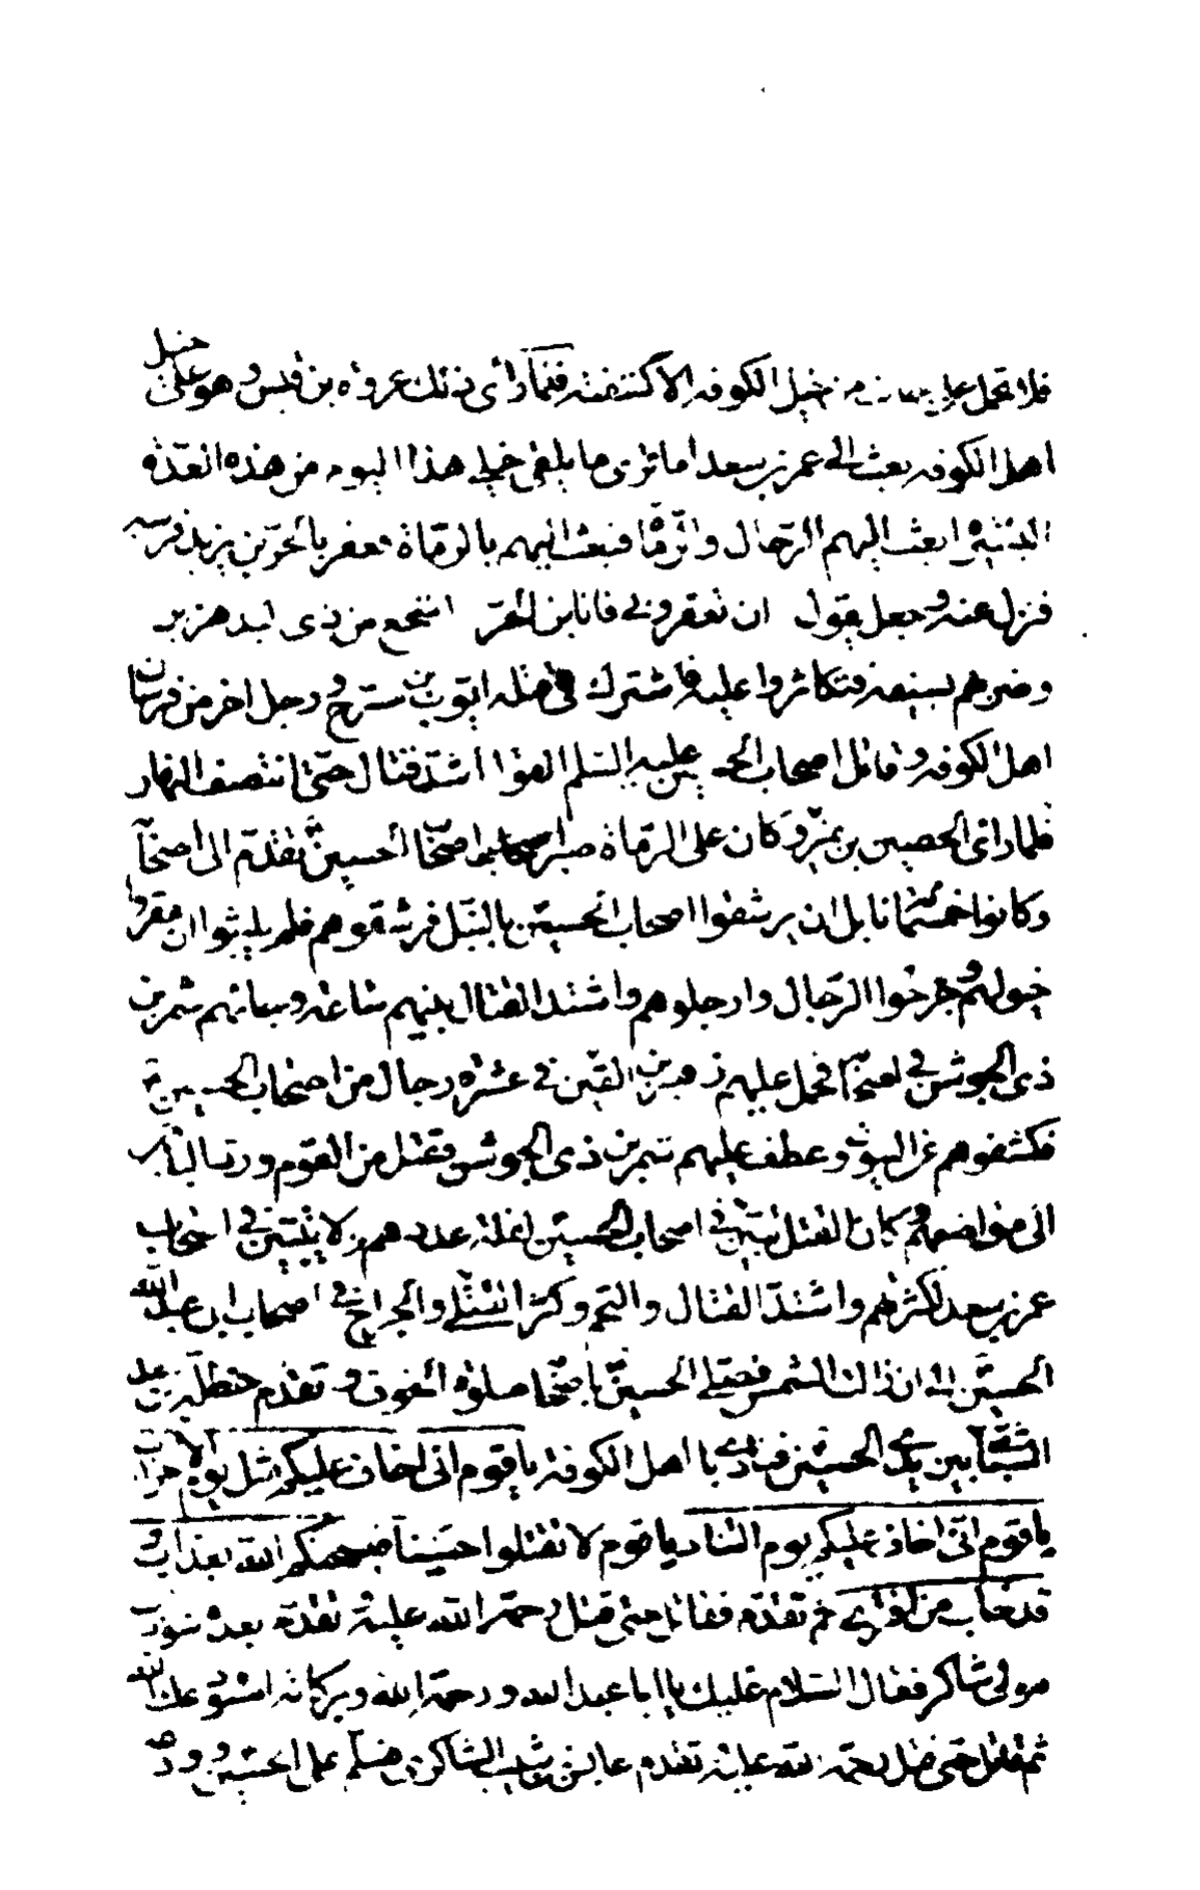 فلا تحمل على جانب من خيل الكوفه الا كشفته فلما رأى ذلك عروة بن قيس وهو على خيل
اهل الكوفه بعث الى عمر بن سعد اما ترى ما يلقى خيلى هذا اليوم من هذه العدة
اليسيرة ابعث اليهم الرجال والرماة فبعث اليهم بالرماة فعقر بالحر بن يزيد فرسه
فنزل عنه وجعل يقول ان تعقرونى فانا بن الحر اشجع من ذى لبد هزبر
وضربهم بسيفه فتكاثروا عليه فاشترك فى قتله ايوب بن مسرح ورجل اخر من فرسان
اهل الكوفه وقاتل اصحاب الحسين عليه السلم القوم اشد قتال حتى انتصف النهار
فلما راى الحصين بن نمير وكان على الرماة صبر اصحاب الحسين تقدم الى اصحابه
وكانوا خمسمائة نابل ان يرشقوا اصحاب الحسين بالنبل فرشقوهم فلم يلبثوا ان عقروا
خيولهم وجرحوا الرجال وارجلوهم واشتد القتال بينهم ساعة وجاءهم شمر بن
ذى الجوشن فى اصحابه فحمل عليهم زهير بن القين فى عشرة رجال من اصحاب الحسين
فكشفوهم عن البيوت وعطف عليهم شمر بن ذى الجوشن فقتل من القوم ورد الباقين
الى مواضعهم وكان القتل يتبين فى اصحاب الحسين لقلة عددهم ولا يتبين فى اصحاب
عمر بن سعد لكثرتهم واشتد القتال والتحم وكثر القتل والجراح فى اصحاب ابى عبد الله
الحسين الى ان زالت الشمس فصلى الحسين باصحابه صلوة الخوف وتقدم حنظلة بن سعد
الشبامى بين يدى الحسين فنادى يا اهل الكوفة يا قوم انى اخاف عليكم مثل يوم الاحزاب
يا قوم انى اخاف عليكم يوم التناد يا قوم لا تقتلوا حسينا فيسحتكم الله بعذاب
قد خاب من افترى ثم تقدم فقاتل حتى قتل رحمة الله عليه تقدم بعده شوذب
مولى شاكر فقال السلام عليك يا ابا عبد الله ورحمة الله وبركاته استودعك الله
ثم قاتل حتى قتل رحمة الله عليه تقدم عابس بن شبيب الشاكرى فسلم على الحسين و